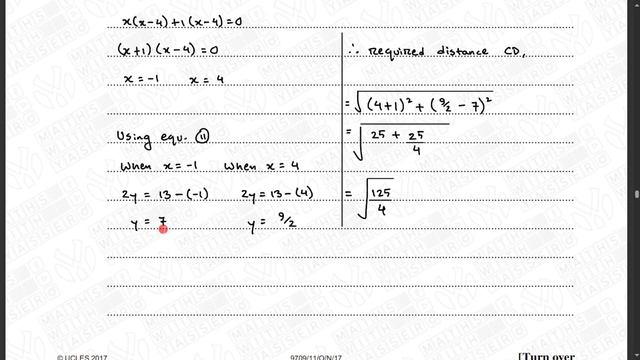 x(x-4)+1(x-4)=0
(x+1)(x-4)=0
x=-1 x=4
Using equ. (11)
When x=-1 When x=4
2y = 13-(-1) 2y = 13-(4)
y = 7 y = 9/2
∴ Required distance CD,
= √((4+1)² + (9/2 - 7)²)
= √(25 + 25/4)
= √(125/4)
© UCLES 2017 9709/11/O/N/17 [Turn over